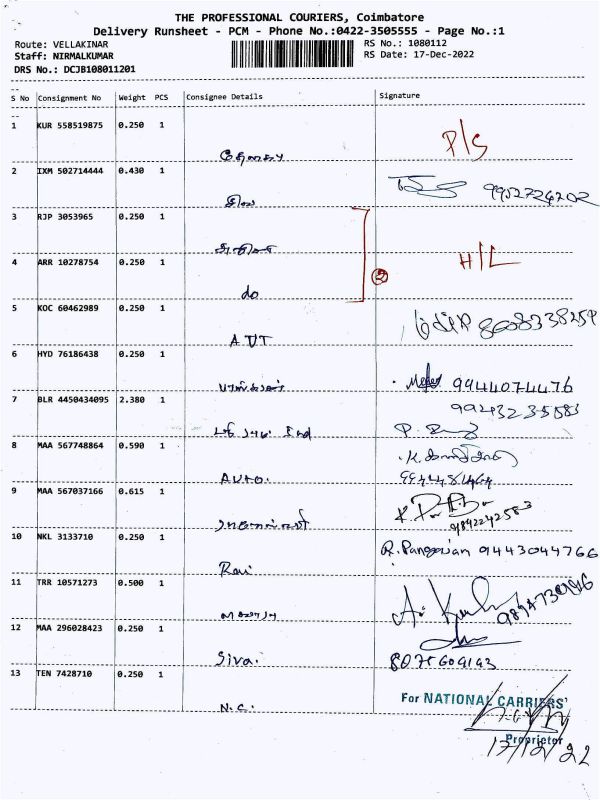 THE PROFESSIONAL COURIERS, Coimbatore
Delivery Runsheet - PCM - Phone No.:0422-3505555 - Page No.:1
Route: VELLAKINAR
RS No.: 1080112
Staff: NIRMALKUMAR
RS Date: 17-Dec-2022
DRS No.: DCJB108011201
S No Consignment No Weight PCS Consignee Details Signature
1 KUR 558519875 0.250 1
P/S
2 IXM 502714444 0.430 1
9952724202
3 RJP 3053965 0.250 1
4 ARR 10278754 0.250 1 H/L
do
2
5 KOC 60462989 0.250 1
AVT
6 HYD 76186438 0.250 1
9944074476
7 BLR 4450434095 2.380 1
8 MAA 567748864 0.590 1
AUTO.
9 MAA 567037166 0.615 1
9842242583
10 NKL 3133710 0.250 1 R. Pangovian 9443044766
Ravi
11 TRR 10571273 0.500 1
12 MAA 296028423 0.250 1
Siva. 8075609143
13 TEN 7428710 0.250 1
For NATIONAL CARRIERS'
N.C.
Proprietor
17/12/22